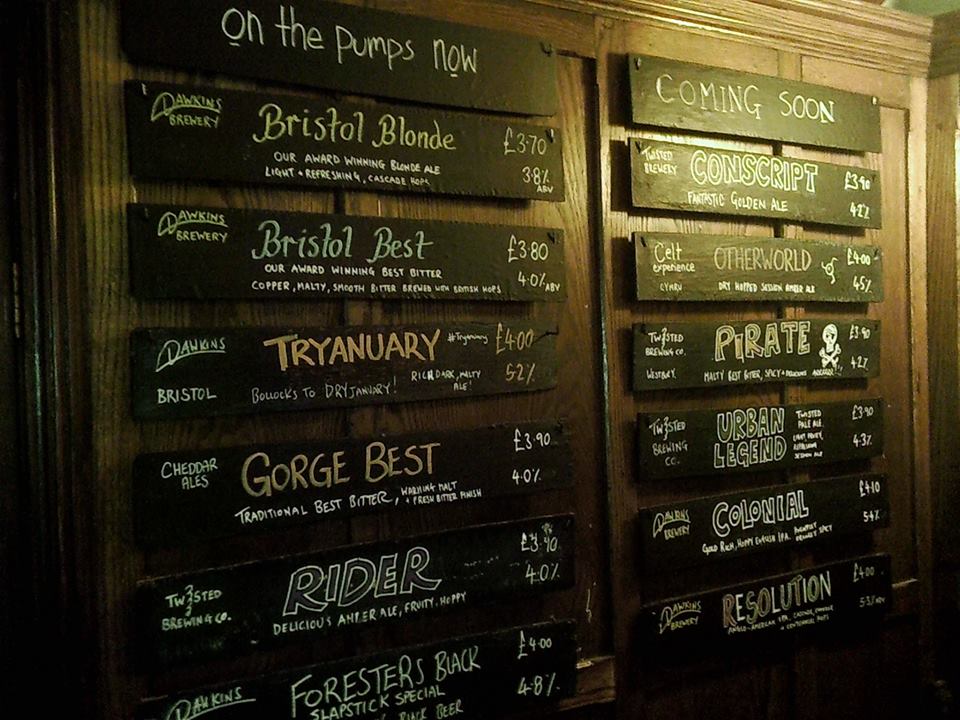 on the pumps now
DAWKINS
BREWERY
Bristol Blonde
£3·70
OUR AWARD WINNING BLONDE ALE
LIGHT + REFRESHING, CASCADE HOPS
3·8%
ABV
DAWKINS
BREWERY
Bristol Best
£3·80
OUR AWARD WINNING BEST BITTER
COPPER, MALTY, SMOOTH BITTER BREWED WITH BRITISH HOPS
4·0% ABV
DAWKINS
BRISTOL
TRYANUARY
#Tryanuary
£4·00
BOLLOCKS TO DRYJANUARY!
RICH, DARK, MALTY
ALE!
5·2%
CHEDDAR
ALES
GORGE BEST
£3·90
TRADITIONAL BEST BITTER, WARMING MALT
+ FRESH BITTER FINISH
4·0%
TW3STED
BREWING CO.
RIDER
£3·90
DELICIOUS AMBER ALE, FRUITY, HOPPY
4·0%
DAWKINS
FORESTERS BLACK
SLAPSTICK SPECIAL
BLACK BEER
£4·00
4·8%
COMING SOON
TWISTED
BREWERY
CONSCRIPT
£3·90
FANTASTIC GOLDEN ALE
4·2%
Celt
experience
CYMRU
OTHERWORLD
£4·00
DRY HOPPED SESSION AMBER ALE
4·5%
TW3STED
BREWING CO.
WESTBURY.
PIRATE
£3·90
MALTY BEST BITTER, SPICY + DELICIOUS
4·2%
TW3STED
BREWING
CO.
URBAN
LEGEND
TWISTED
PALE ALE
LIGHT, FRUITY,
REFRESHING
SESSION ALE
£3·90
4·3%
DAWKINS
BREWERY
COLONIAL
£4·10
GOLD RICH, HOPPY ENGLISH IPA.
5·4%
DAWKINS
BREWERY
RESOLUTION
£4·00
ANGLO-AMERICAN IPA, CASCADE,
+ CENTENNIAL HOPS
5·3% ABV